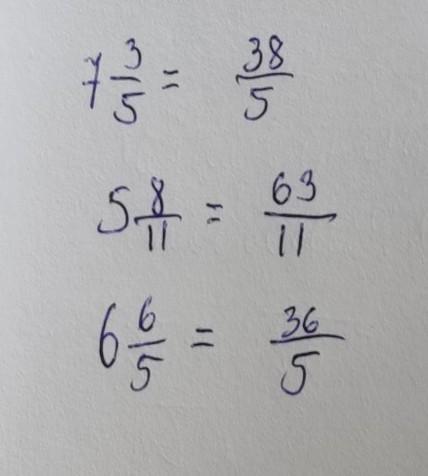 7 3/5 = 38/5
5 8/11 = 63/11
6 6/5 = 36/5